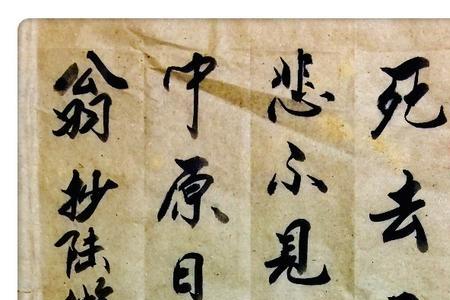 死去
悲不見
中原日
翁 抄陸